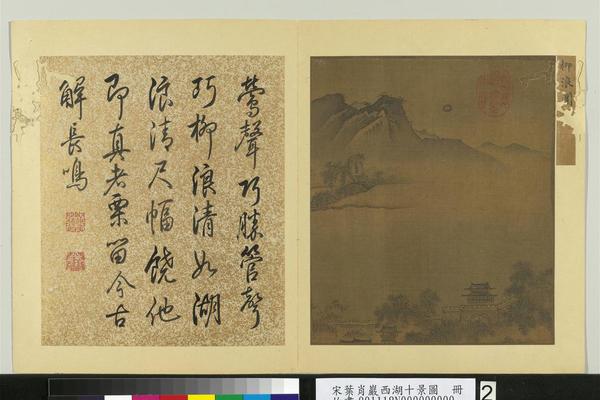 鶯聲巧勝管聲
巧柳浪清如湖
浪清尺幅饒他
即真者栗留今古
解長鳴
柳浪聞
宋葉肖巖西湖十景圖 冊
001118N000000000
2